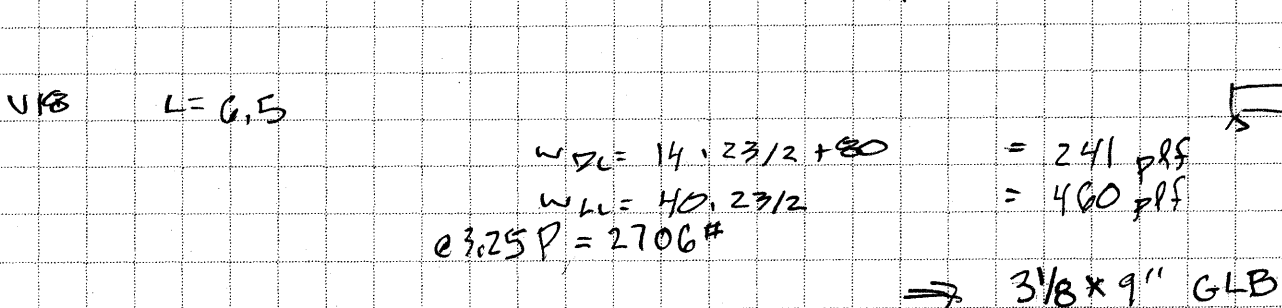 U18 L= 6,5
w DL = 14 · 23/2 + 80 = 241 plf
w LL = 40 · 23/2 = 460 plf
@ 3.25 P = 2706#
⇒ 3 1/8 * 9" GLB